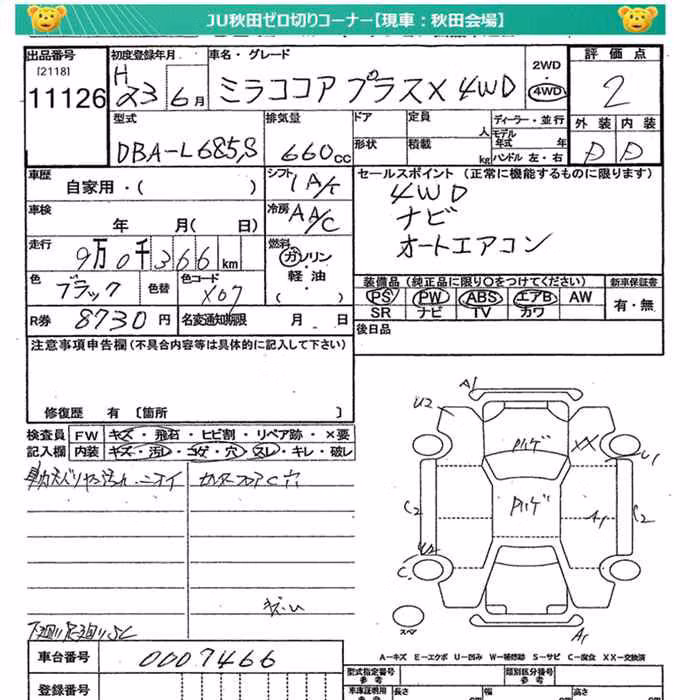 JU秋田ゼロ切りコーナー【現車：秋田会場】
出品番号 初度登録年月 車名・グレード 2WD 評価点
[2118] H 23 6月 ミラココア プラスX 4WD 4WD 2
11126 外装 内装
型式 排気量 ドア 定員 人 ディーラー・並行
モデル年式 年
DBA-L685S 660cc 形状 積載 kg ハンドル 左・右 D D
車歴 シフト 1 A/T セールスポイント (正常に機能するものに限ります)
自家用・( ) 4WD
車検 冷房 AA/C ナビ
年 月( 日) オートエアコン
走行 9万0千366km 燃料 ガソリン
軽油
( )
色 ブラック 色替 色コード X07 装備品 (純正品に限り○をつけてください) 新車保証書
PS PW ABS エアB AW 有・無
SR ナビ TV カワ
R券 8730円 名変通知期限 月 日 後日品
注意事項申告欄(不具合内容等は具体的に記入して下さい)
修復歴 有 〔箇所 〕
検査員 FW キズ・飛石・ヒビ割・リペア跡・×要
記入欄 内装 キズ・汚レ・コゲ・穴・スレ・キレ・破レ
ニオイ C穴
A1
U2
XX
U1
C2
A1
C2
U2
C1
スペア
A1
A－キズ E－エクボ U－凹み W－補修跡 S－サビ C－腐食 XX－交換済
車台番号 0007466
型式指定番号 類別区分番号
参考 参考
登録番号 車庫証明用 長さ 幅 高さ